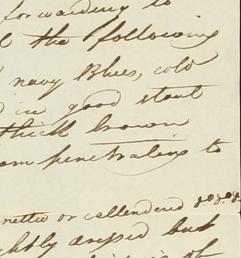 forwarding to
the following
navy Blues, cold
in good stout
thick brown
from penetrating to
or callendered &c &c &c
dressed but